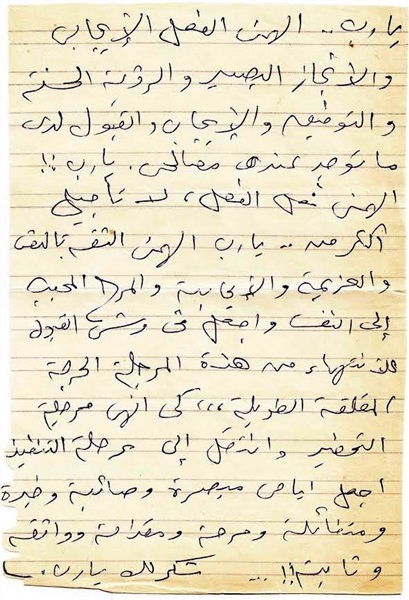 يارب.. الهمنى الفعل الإيجابى
والانجاز البصير والرؤية الحسنة
والتوفيق والإيجاب والقبول لدى
ما توجد عندهم مفاتحى. يارب!!
الهمنى فعل الفعل، لا تأجيلى
أكثر من.. يارب الهمنى الثقة بالنفس
والعزيمة والإيجابية والمرح المحبب
إلى النفس واجعل فى وشى القبول
للانتهاء من هذه المرحلة الحرجة
المقلقة الطويلة،،، كى انهى مرحلة
التحضير وانتقل إلى مرحلة التنفيذ
اجعل ايامى مبصرة وصائبة وخيرة
ومتفائلة ومرحة ومقدامة وواثقة
وثابتة!!... شكر لك يارب.